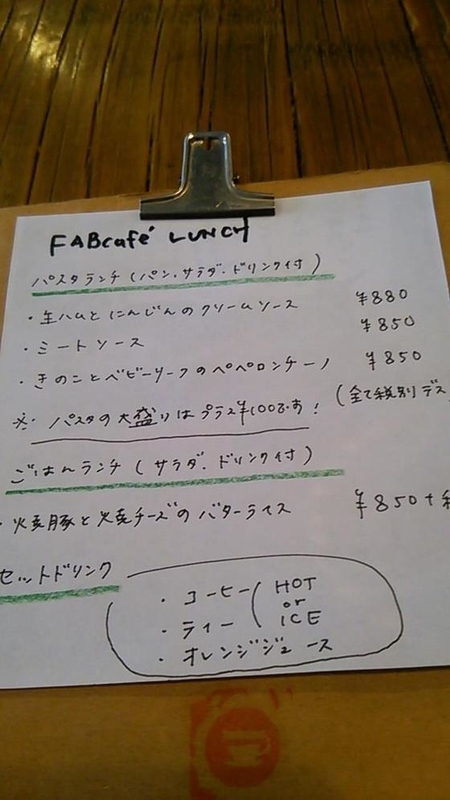 FABcafé LUNCH
パスタランチ(パン・サラダ・ドリンク付)
・生ハムとにんじんのクリームソース ¥880
・ミートソース ¥850
・きのことベビーリーフのペペロンチーノ ¥850
※ パスタの大盛りはプラス¥100です! (全て税別デス
ごはんランチ(サラダ・ドリンク付)
・焼豚と焼チーズのバターライス ¥850+税
セットドリンク
・コーヒー HOT
or
・ティー ICE
・オレンジジュース